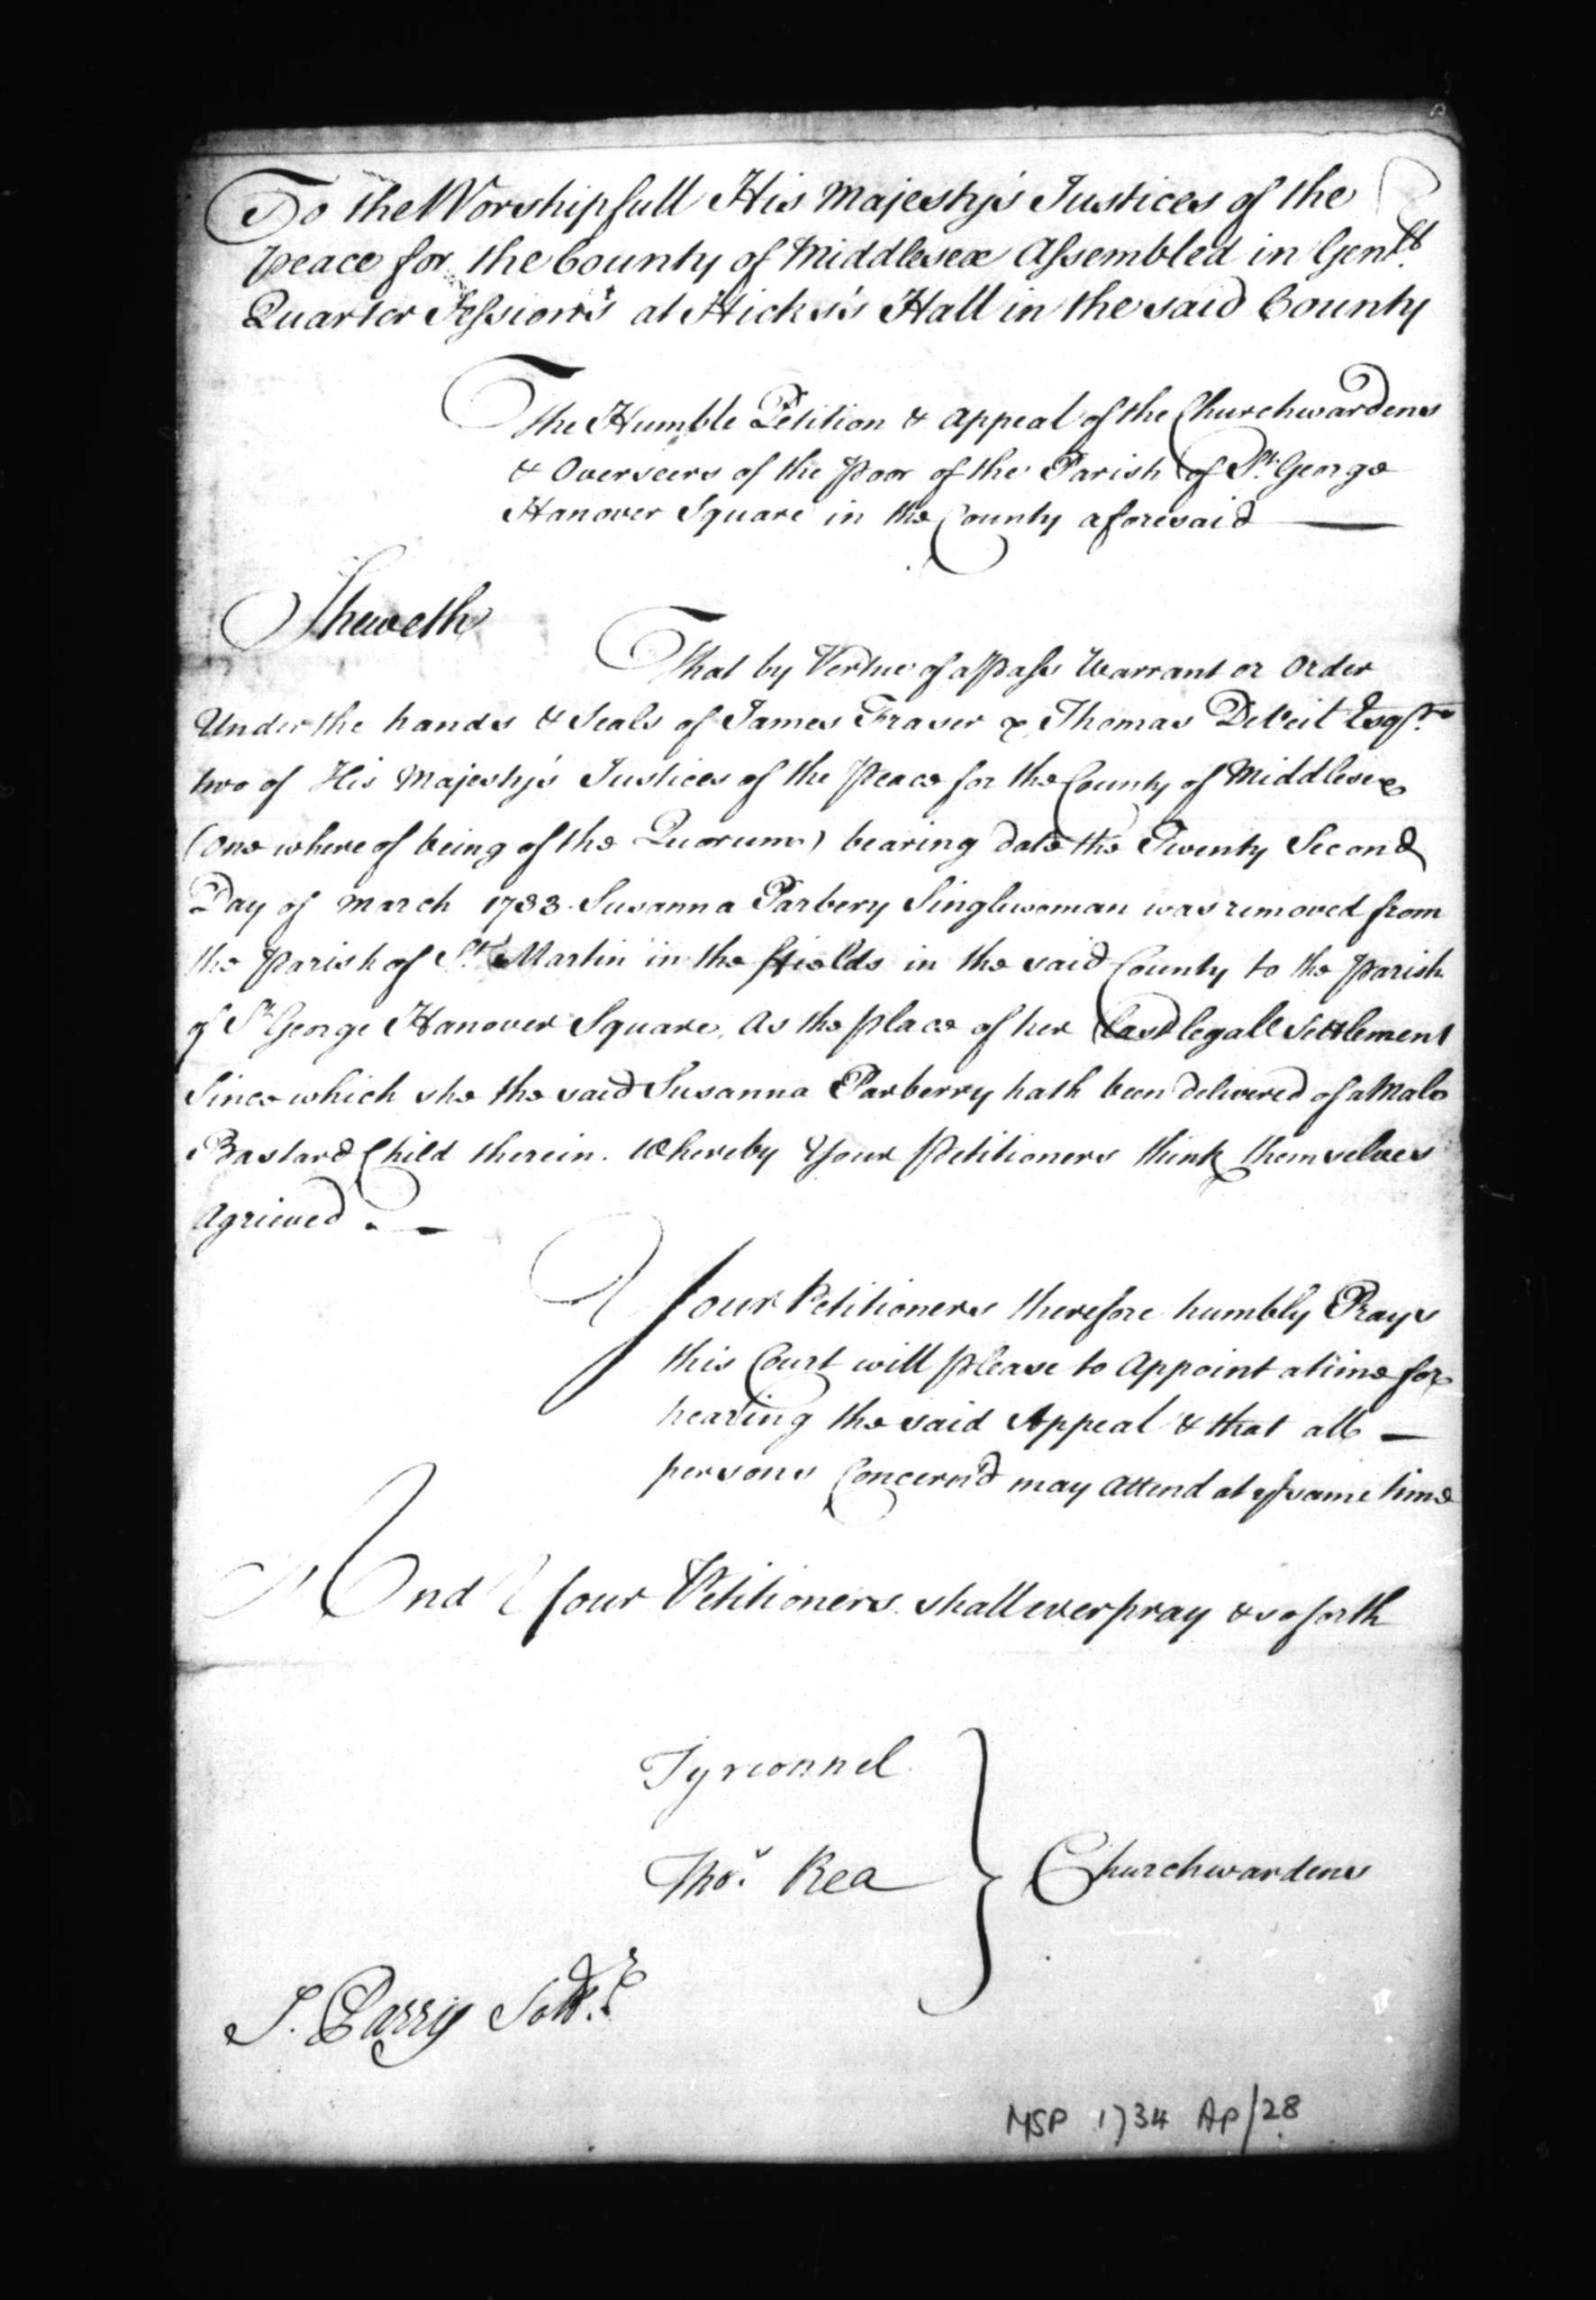 To the Worshipfull His Majesty's Justices of the
peace for the County of Middlesex Assembled in Genll.
Quarter Session's at Hicks's Hall in the said County
The Humble Petition & Appeal of the Churchwardens
& Overseers of the poor of the Parish of St. George
Hanover Square in the County aforesaid
Sheweth
That by Vertue of a Pass Warrant or Order
Under the hands & Seals of James Fraser & Thomas DeVeil Esqrs.
two of His Majesty's Justices of the Peace for the County of Middlesex
(one whereof being of the Quorum) bearing date the Twenty Second
Day of March 1733 Susanna Parbery Singlewoman was removed from
the parish of St. Martin in the ffields in the said County to the parish
of St. George Hanover Square, As the place of her last legall Settlement
Since which she the said Susanna Parberry hath been delivered of a Male
Bastard Child therein. Whereby Your petitioners think themselves
Agrieved. —
Your Petitioners therefore humbly Prays
this Court will please to Appoint a time for
hearing the said Appeal & that all —
persons Concern'd may Attend at ye same time
And Your Petitioners shall ever pray & so forth
Tyrconnel
Thos. Rea
Churchwardens
J. Parry Sollr.
MSP 1734 AP/28